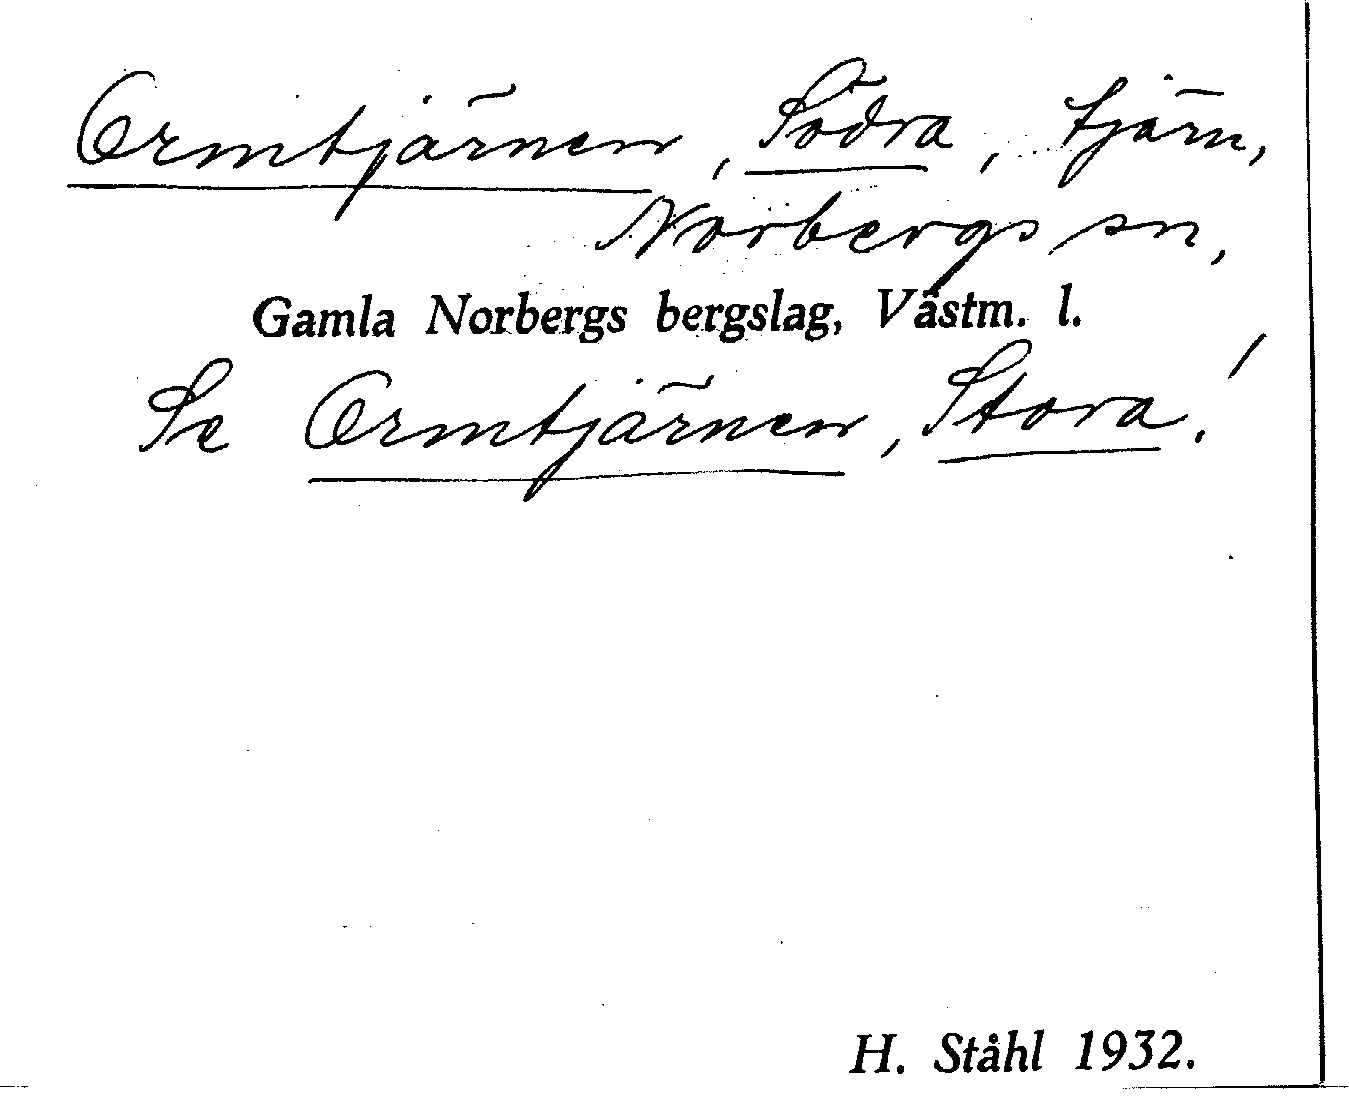 Ormtjärnen, Södra, tjärn,
Norbergs sn,
Gamla Norbergs bergslag, Västm. l.
Se Ormtjärnen, Stora!
H. Ståhl 1932.